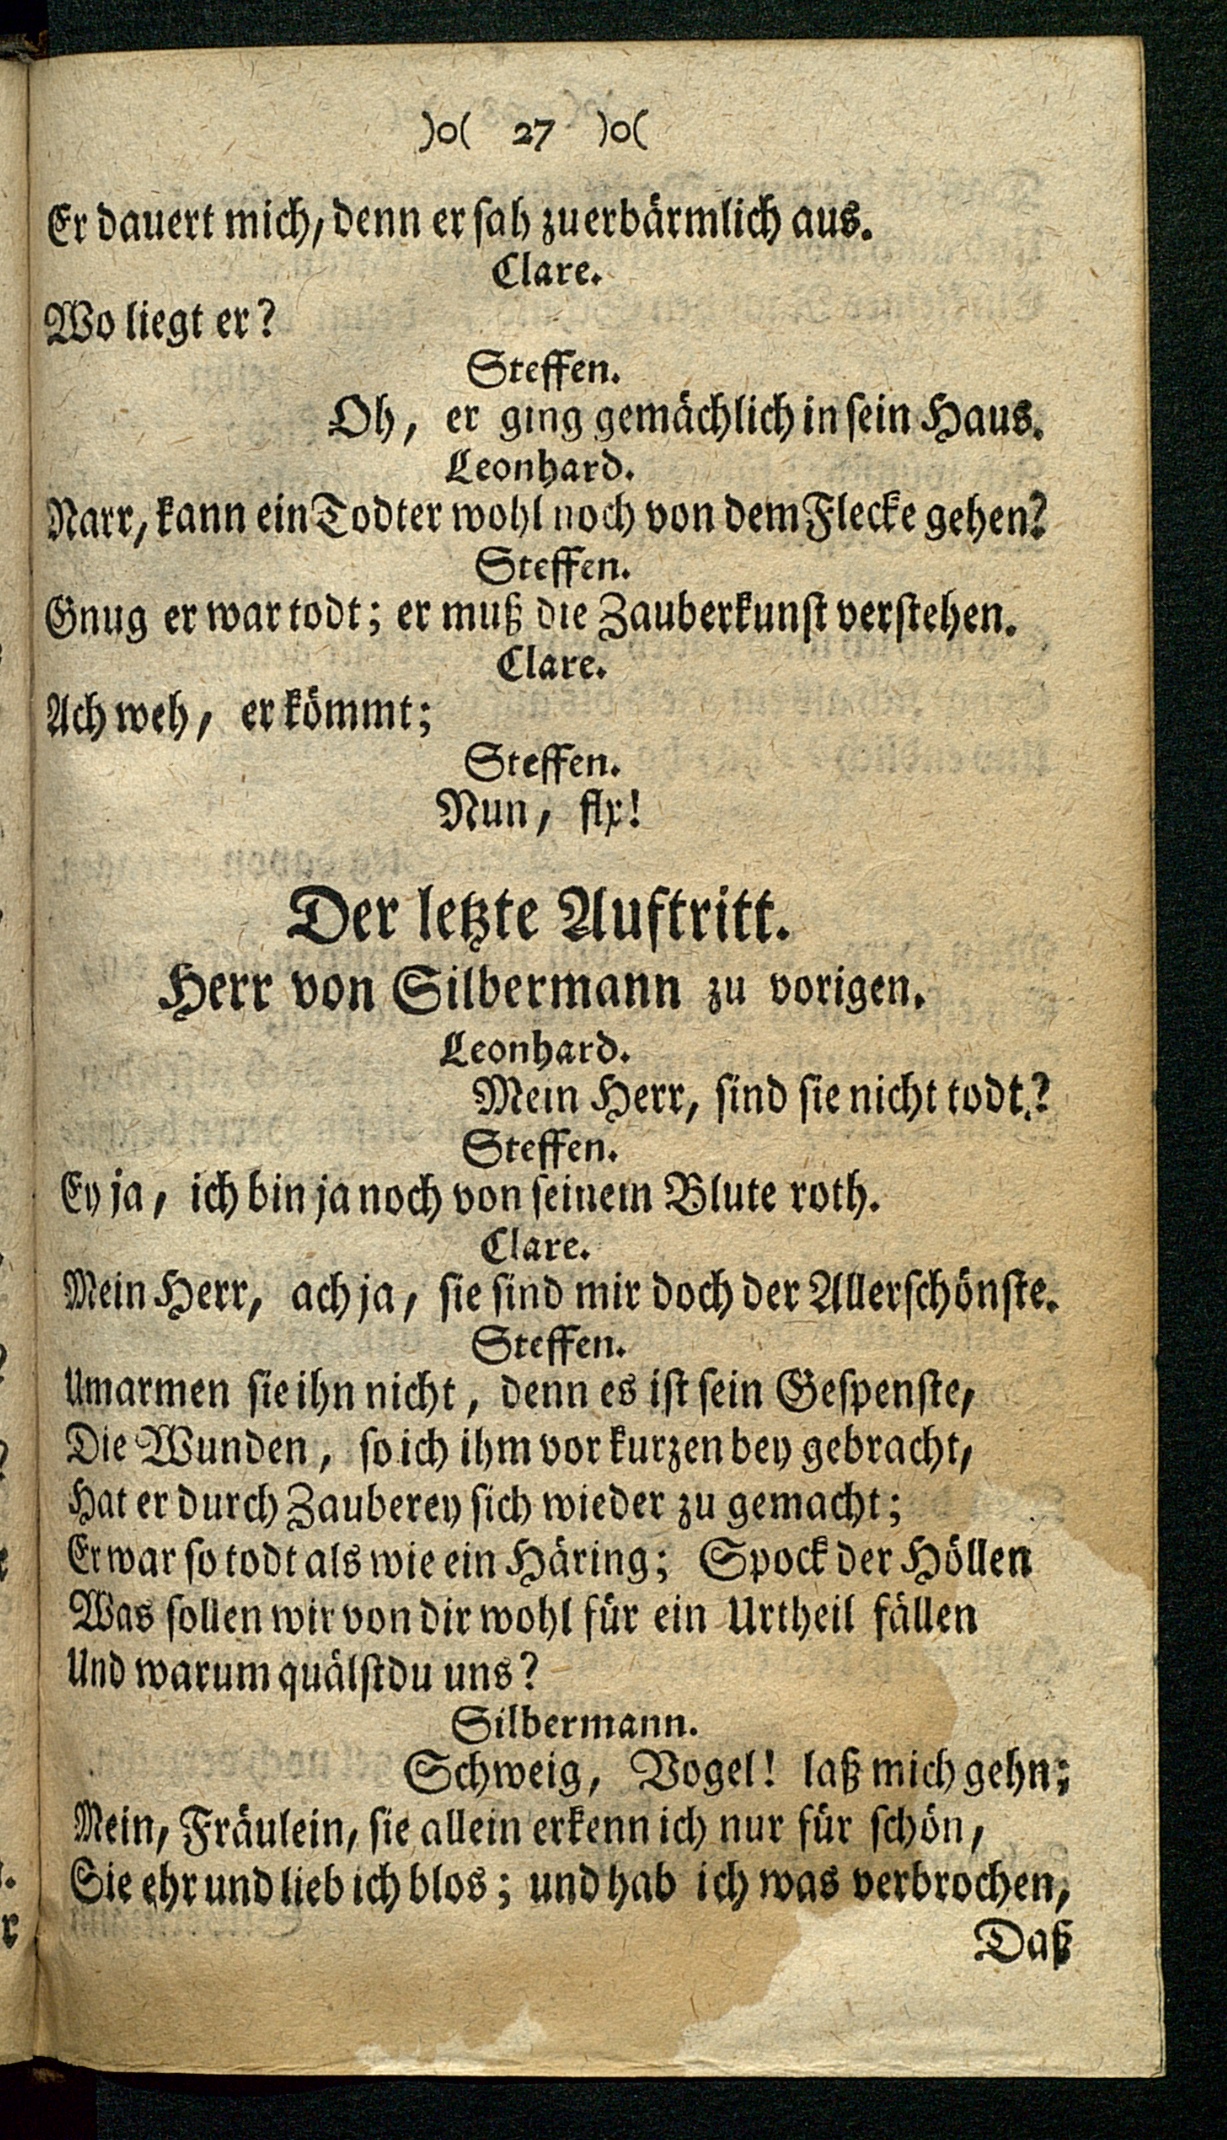 )o( 27 )o(
Er dauert mich, denn er sah zu erbärmlich aus.
Clare.
Wo liegt er?
Steffen.
Oh, er ging gemächlich in sein Haus.
Leonhard.
Narr, kann ein Todter wohl noch von dem Flecke gehen?
Steffen.
Gnug er war todt; er muß die Zauberkunst verstehen.
Clare.
Ach weh, er kömmt;
Steffen.
Nun, fix!
Der letzte Auftritt.
Herr von Silbermann zu vorigen.
Leonhard.
Mein Herr, sind sie nicht todt?
Steffen.
Ey ja, ich bin ja noch von seinem Blute roth.
Clare.
Mein Herr, ach ja, sie sind mir doch der Allerschönste.
Steffen.
Umarmen sie ihn nicht, denn es ist sein Gespenste,
Die Wunden, so ich ihm vor kurzen bey gebracht,
Hat er durch Zauberey sich wieder zu gemacht;
Er war so todt als wie ein Häring; Spock der Höllen
Was sollen wir von dir wohl für ein Urtheil fällen
Und warum quälst du uns?
Silbermann.
Schweig, Vogel! laß mich gehn;
Mein, Fräulein, sie allein erkenn ich nur für schön,
Sie ehr und lieb ich blos; und hab ich was verbrochen,
Daß